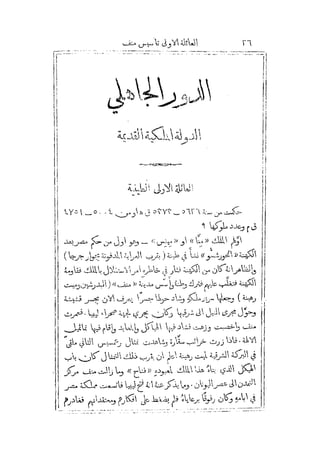 ٢٦ العائلة الاولى تأسيس منف
الدور الجاهلي
الدولة الملكية القديمة
العائلة الاولى الطينية
حكمت من سنة ٥٦٢٦ – ٥٣٧٣ ق ه او من ٥٠٠٤ – ٤٧٥١
ق م وعدد ملوكها ٩
اولهم الملك «مينا» او «مينس» – وهو اول من حكم مصر بعد
الكهنة «الخورشسو» نشأ في طينة (بقرب العرابة المدفونة بجوار جرجا)
والظاهر انه كان من الكهنة فثار في خاطره امر الاستقلال بالملك فقاومه
الكهنة فتغلب عليهم فترك وطنه واسس مدينة «منف» (البدرشين وميت
رهينة) وجعلها سرير ملكه وشاد حولها جسرًا يعرف الان بجسر قشيشة
وحوّل مجرى النيل الى شرقيها وكان يجري لجهة صحراء ليبيا. فعمرت
منف واخصبت وزهت فشاد فيها الهياكل والمعابد واقام فيها تماثيل
الالهة. فاذا زرت خرائب سقارة وشاهدت تمثال رعمسيس الثاني ملقى
في البركة الشرقية لميت رهينة اعلم ان بقرب ذلك التمثال كان باب
الهيكل الذي بناه هذا الملك لمعبوده «فتاح» وما زالت منف مركز
التمدن الى عصر اليونان. ومما يذكر عنه انه فتح ليبيا فاتسعت مملكة مصر
في ايامه وكان رؤوفًا برعاياه فلم يضغط على افكارهم ومعتقداتهم فغادرهم